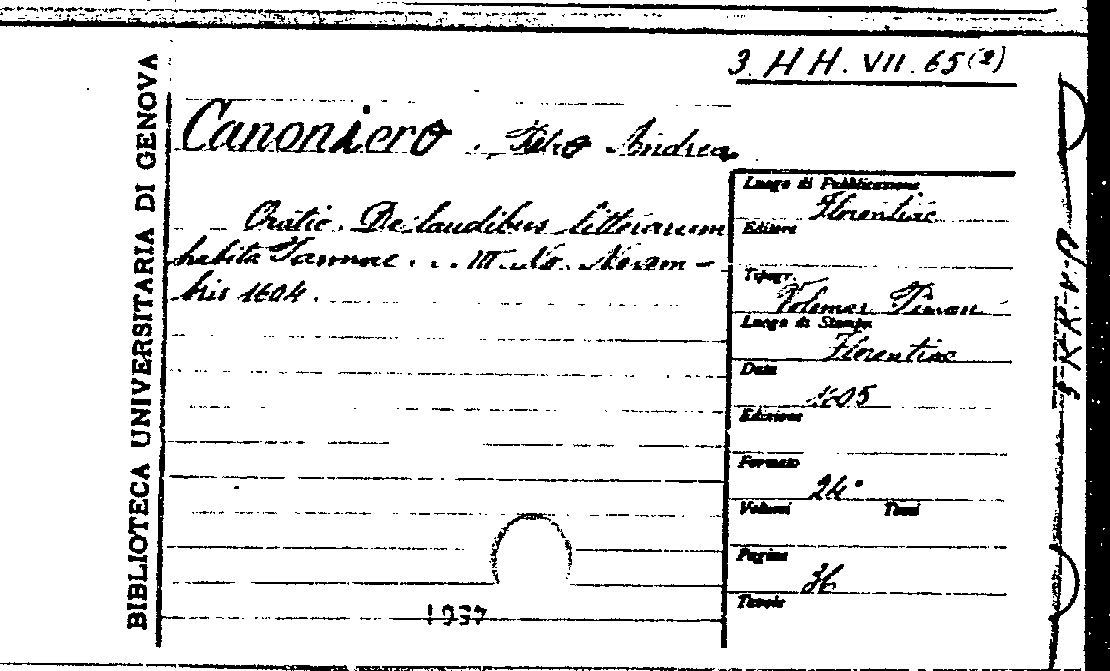 3. H H. VII. 65(2)
BIBLIOTECA UNIVERSITARIA DI GENOVA
Canoniero, Petro Andrea
Oratio. De laudibus litterarum
habita Parmae ... III. No. Novem-
bris 1604.
Luogo di Pubblicazione
Florentiae
Editore
Tipogr.
Volcmar Timan
Luogo di Stampa
Florentiae
Data
1605
Edizione
Formato
24°
Volumi Tomi
Pagine
36
Tavole
1937